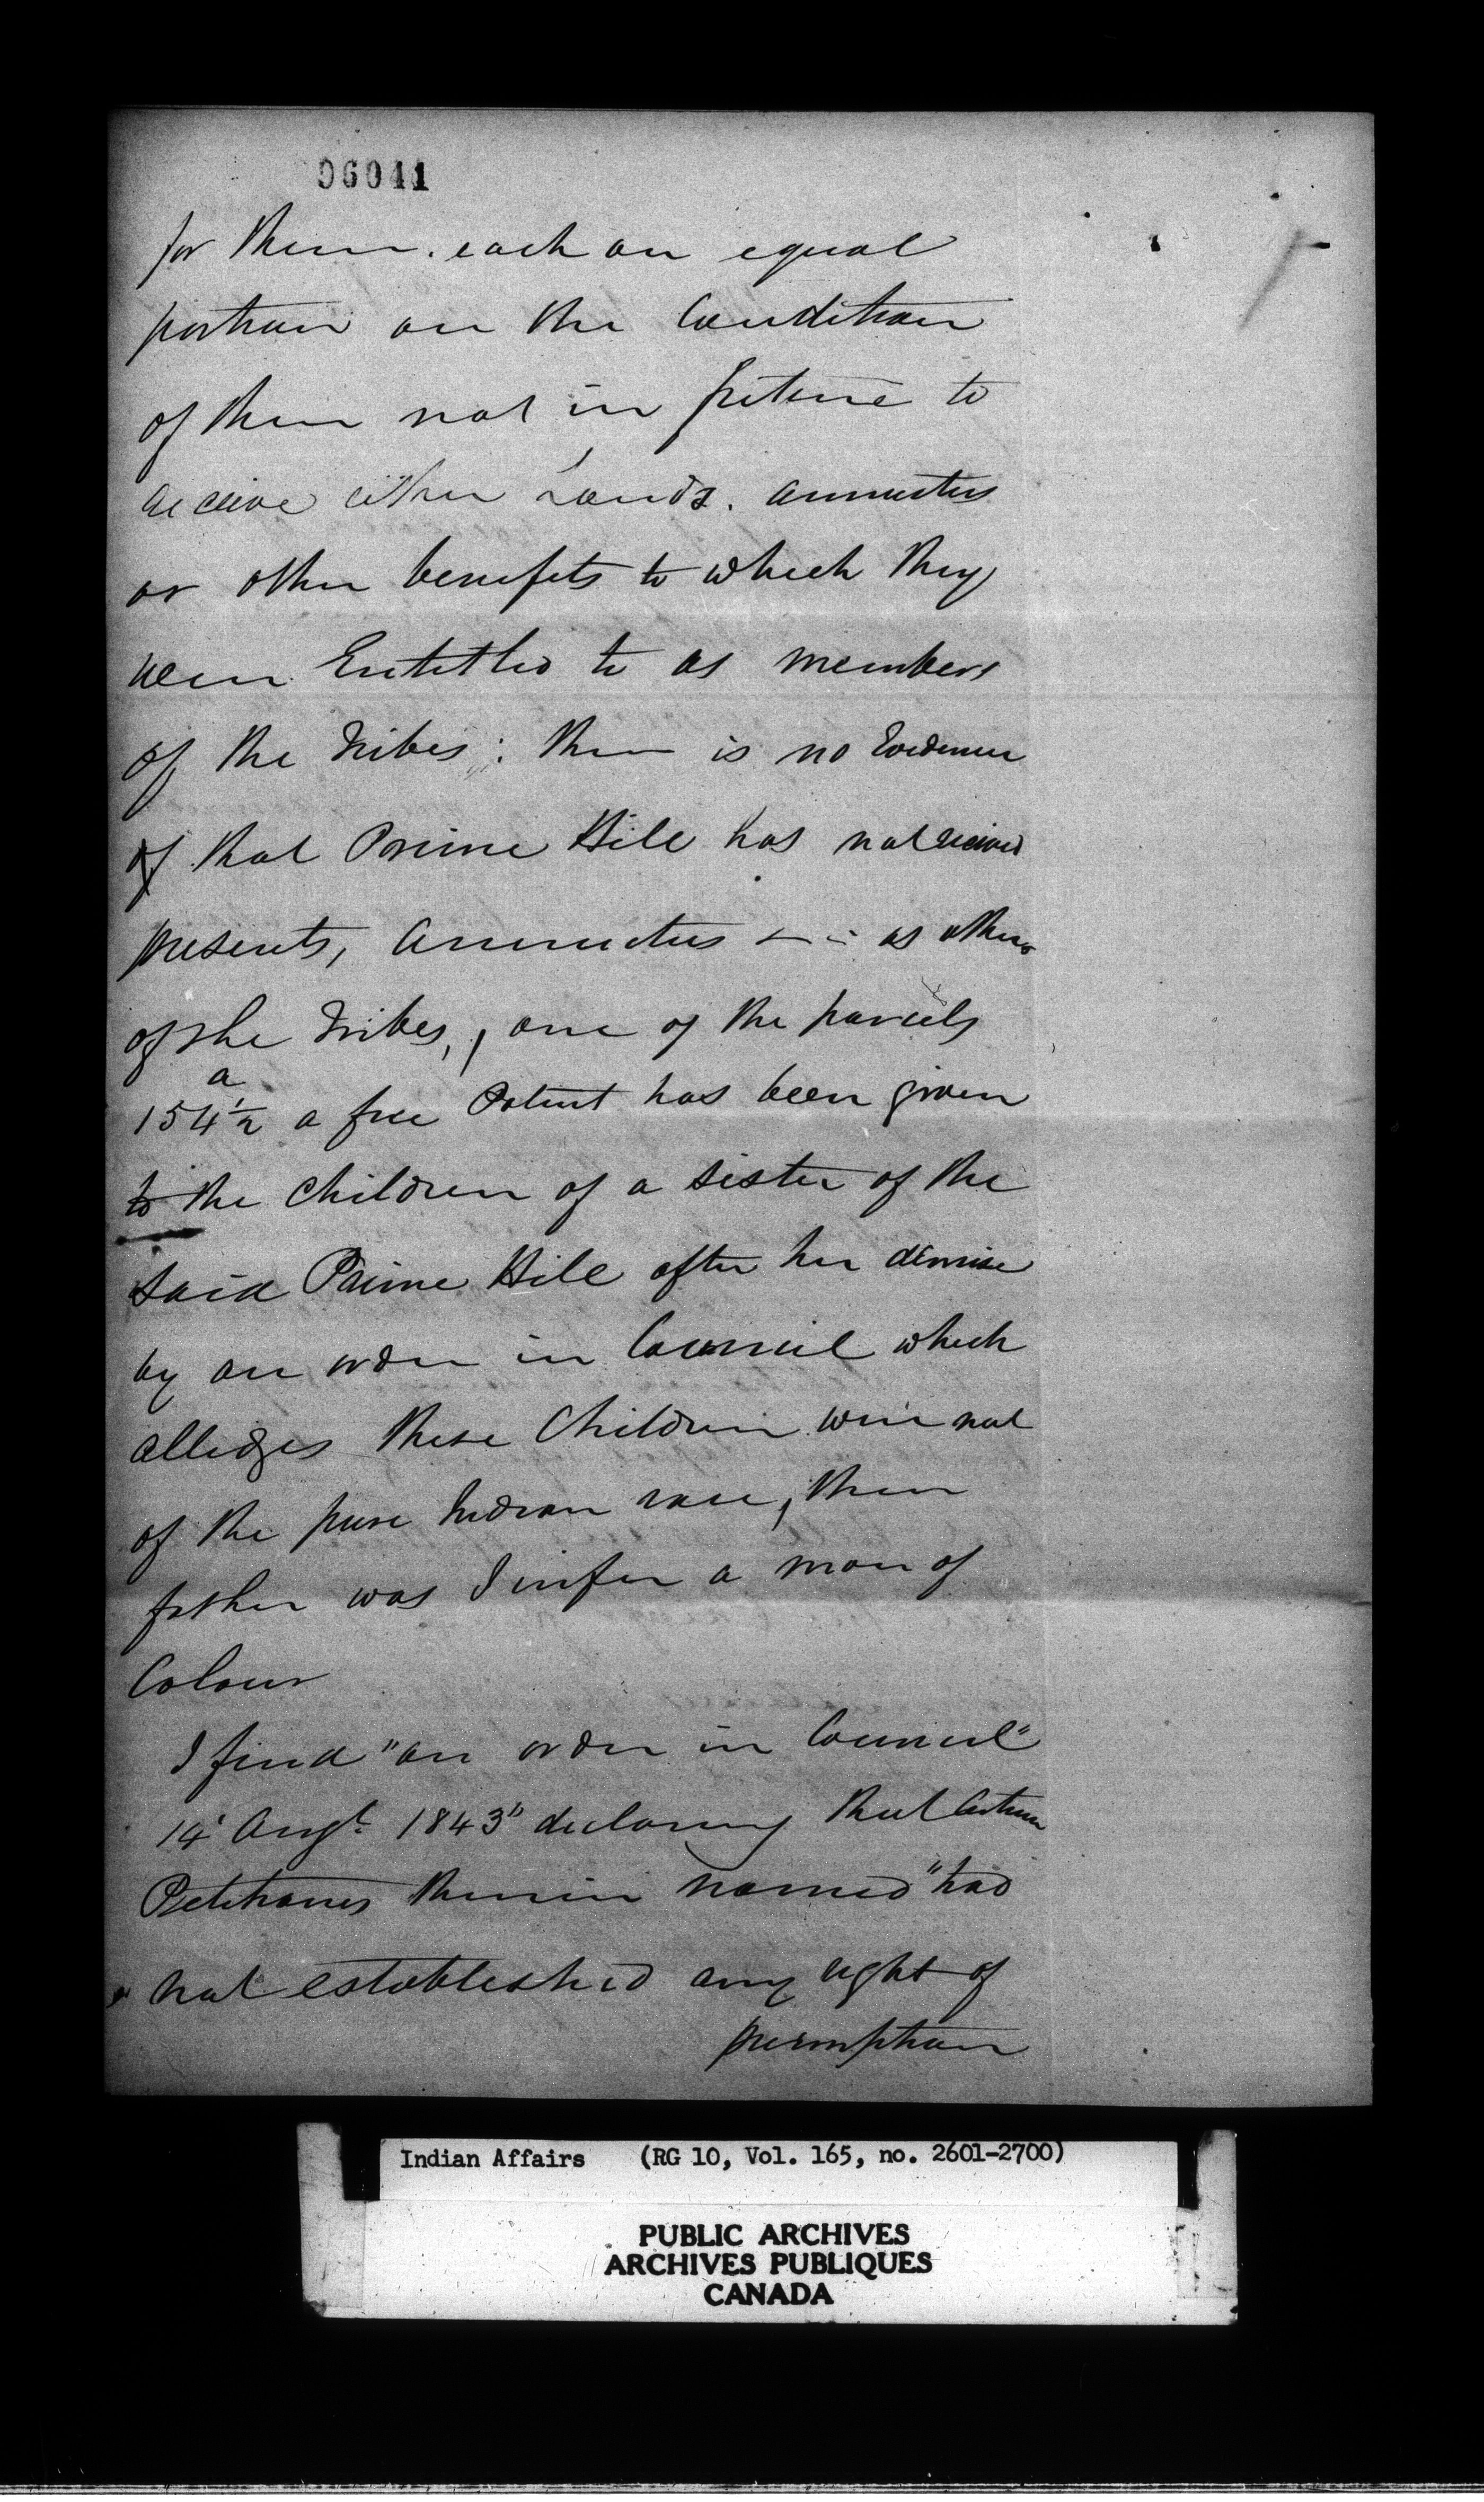 96041
for them. each an equal
portion on the Condition
of them not in future to
receive either Lands. annuities
or other benefits to which they
were Entitled to as members
of the Tribes; there is no Evidence
of that Prime Hill has not received
presents, annuities as others
of the Tribes, one of the parcels
a
154 1/2 a free Patent has been given
to the Children of a sister of the
said Prime Hill after her demise
by an order in Council which
alledges these Children were not
of the pure Indian race, their
father was I infer a man of
Colour
I find "an order in Council"
14' Augt. 1843" declaring that Certain
Petitioners therein named "had
not established any right of
preemption
Indian Affairs (RG 10, Vol. 165, no. 2601-2700)
PUBLIC ARCHIVES
ARCHIVES PUBLIQUES
CANADA